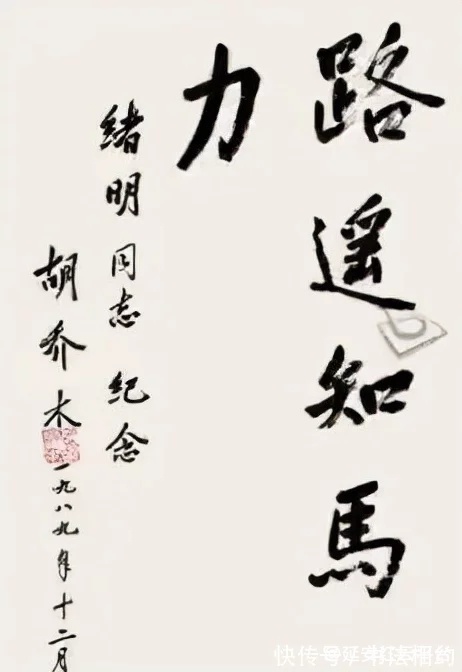 路遥知馬
力
緒明同志纪念
胡乔木
一九八九年十二月
快传号